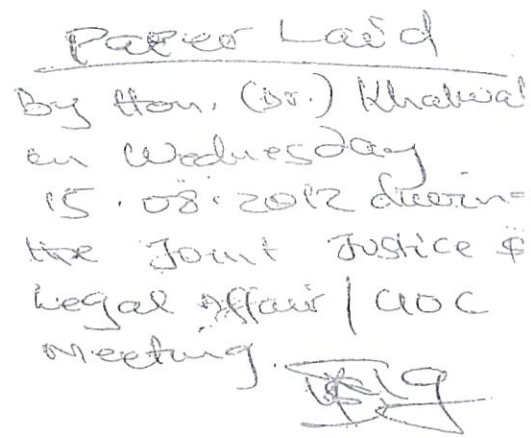 Paper Laid
By Hon. (Dr.) Khalwal
on Wednesday
15.08.2012 during
the Joint Justice &
Legal Affair / CIOC
Meeting.